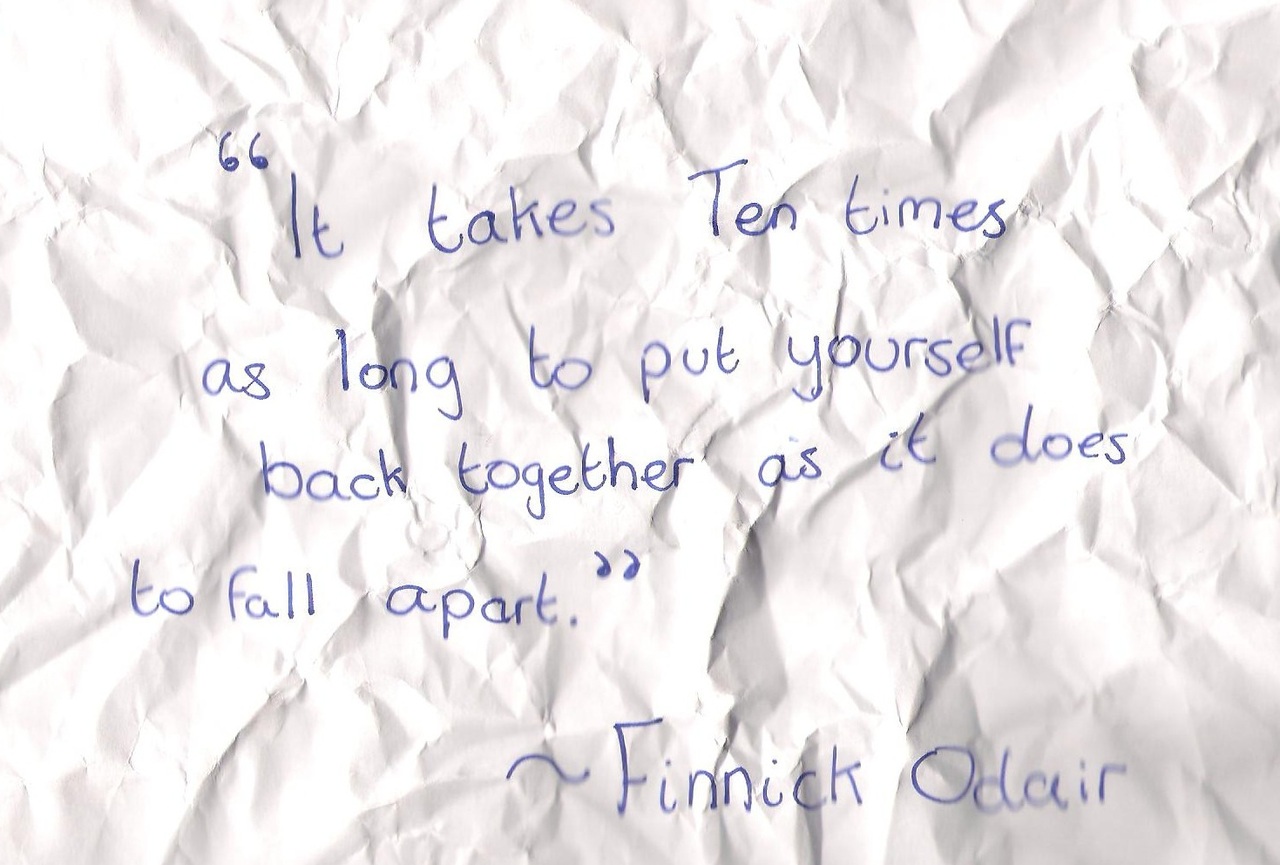 “It takes Ten times
as long to put yourself
back together as it does
to fall apart.”
~ Finnick Odair